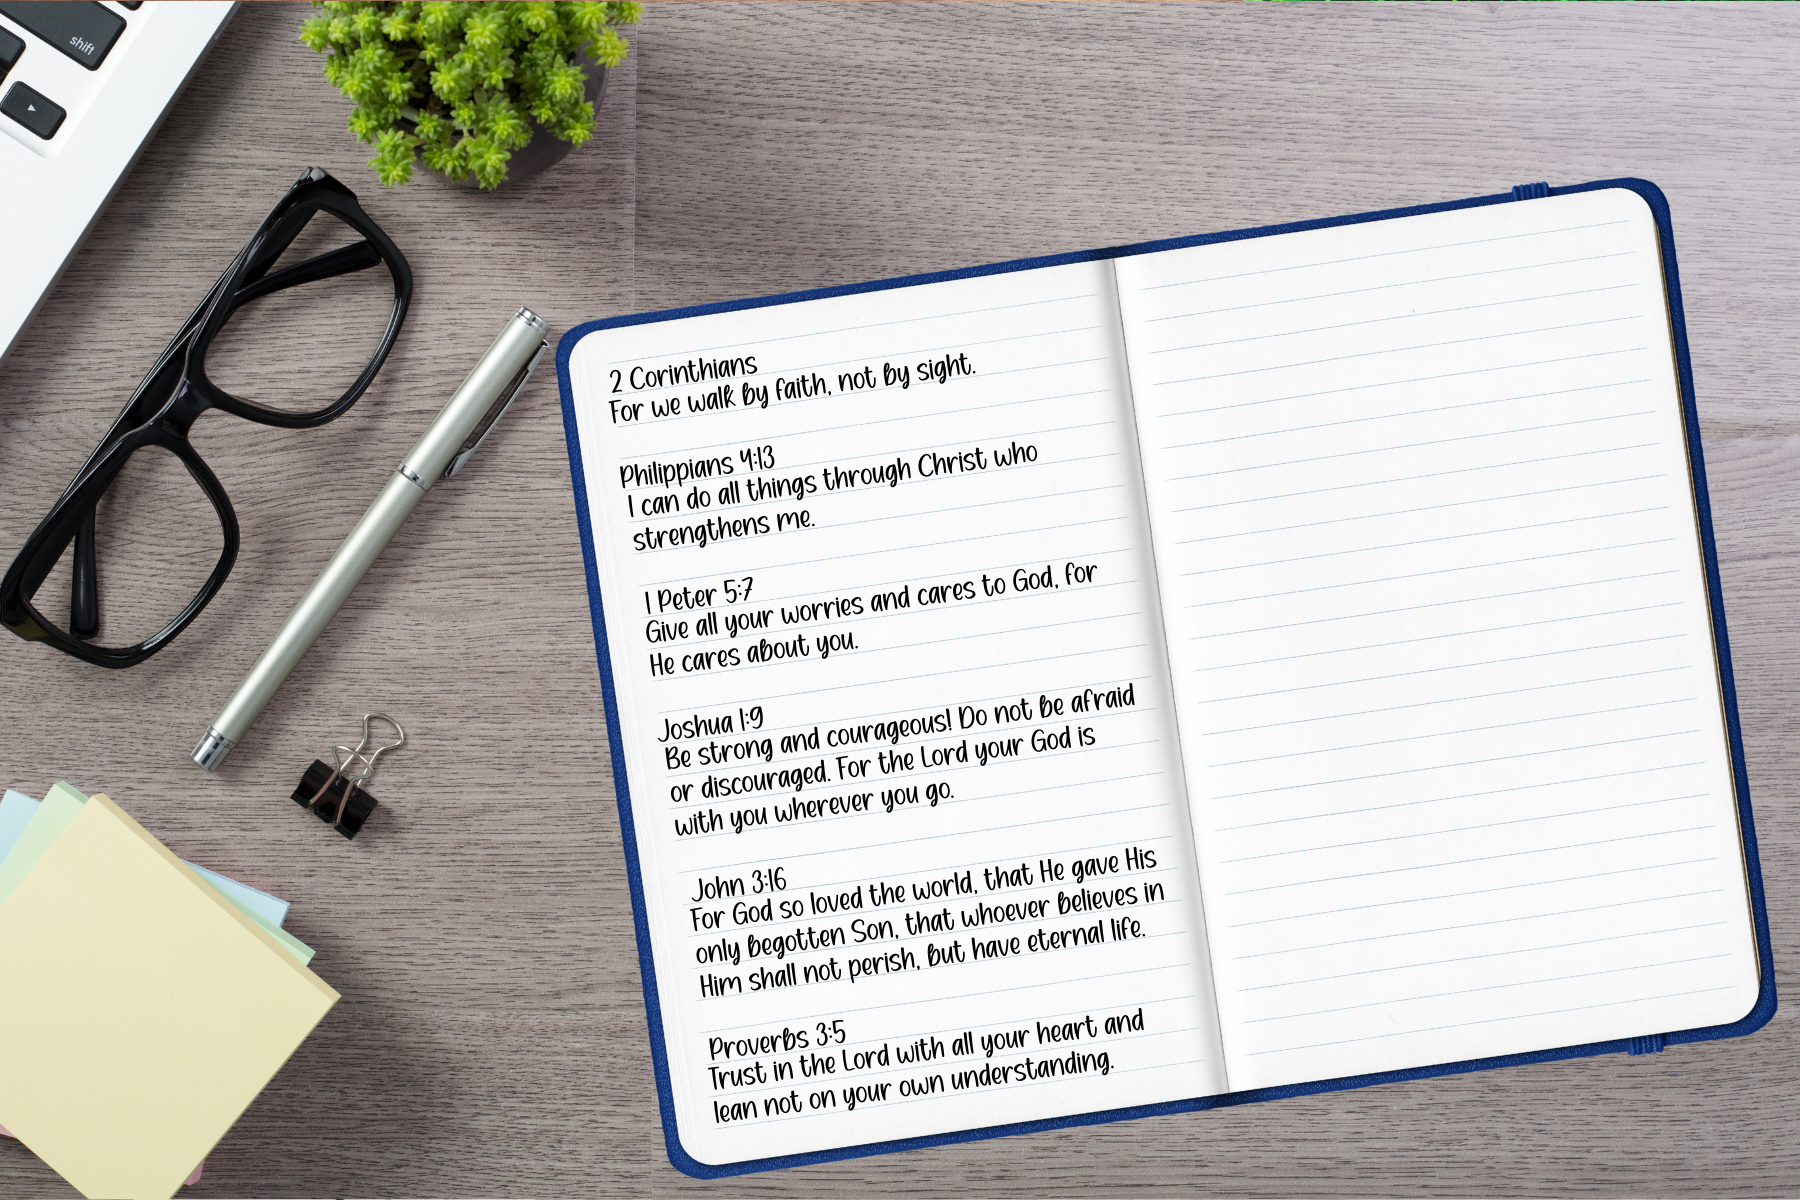 shift
2 Corinthians
For we walk by faith, not by sight.
Philippians 4:13
I can do all things through Christ who
strengthens me.
1 Peter 5:7
Give all your worries and cares to God, for
He cares about you.
Joshua 1:9
Be strong and courageous! Do not be afraid
or discouraged. For the Lord your God is
with you wherever you go.
John 3:16
For God so loved the world, that He gave His
only begotten Son, that whoever believes in
Him shall not perish, but have eternal life.
Proverbs 3:5
Trust in the Lord with all your heart and
lean not on your own understanding.